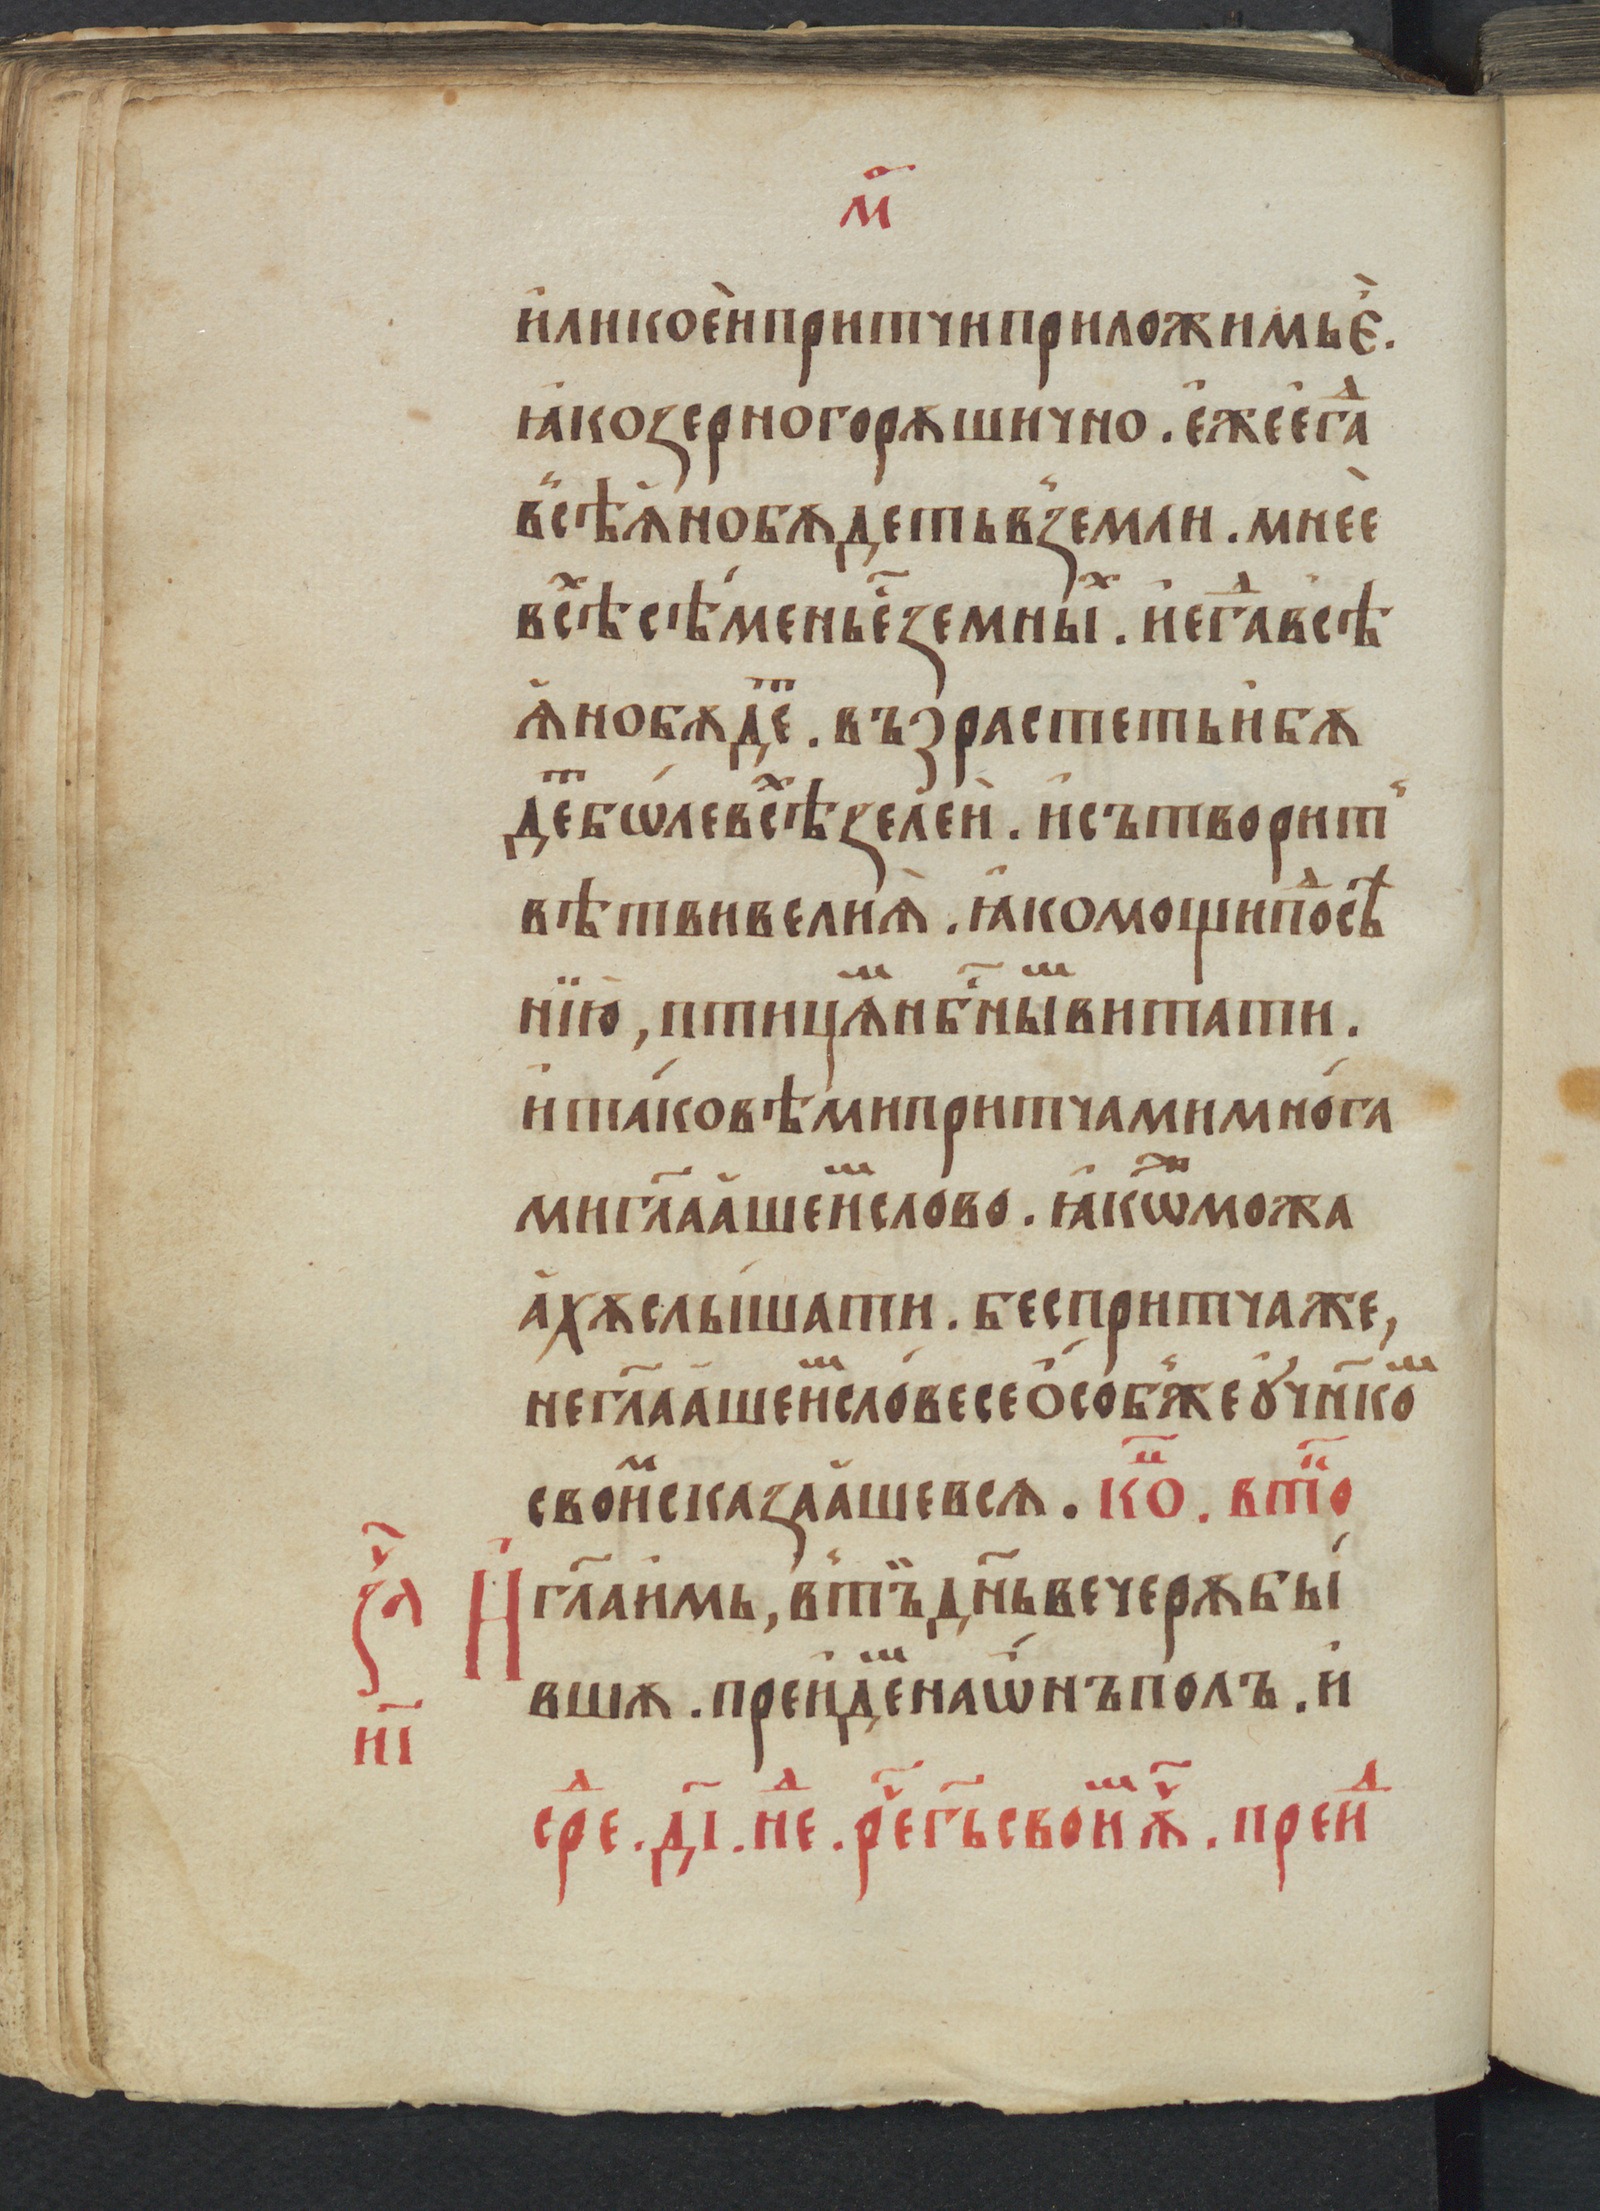 м҃р
и҆ликоѐи притчи приложимь ѐ҆.
ꙗ҆ко зерно горѫшично. є҆же є҆гдⷶа
в꙽сѣѧ҆но бѫдеть в꙽ земли. мнѐе
всѣⷯ сѣ́мень є҆҃ земныⷯ. и҆ є҆гдⷶа всѣ
ѧ҆но бѫдеⷮ. възрастеть и҆ бѫ
деⷮ бѡ́ле всѣⷯ зелеи. и҆ сътворит꙽
вѣтви велиѧ. ꙗ҆ко мощи поⷣ сѣ
нїю, птицѧⷨ нб҃ныⷨ витати.
и҆ тако́вѣми притчами мно́га
ми гл҃аа҆ше иⷨ слово. ꙗ҆кѡⷤ можа
а҆хѫ слы́шати. бес притча же,
не гл҃аа҆ше иⷨ сло́весе ѻ҆со́б꙽ же ᲂу҆чн҃коⷨ
своиⷨ сказаа҆ше всѧ. коⷰ҇. втоⷬ
И҆ гл҃а и҆мь, в꙽ тъ дн҃ь вечерѫ бы́
вшѫ. преи҆деⷨ на ѡ҆́нъ полъ. и҆
среⷣ. д҃і. неⷣ. реⷱ҇ г҃ь своиⷨ ѹⷱ҇. преиⷣ
за҃ⷱ
и҃і